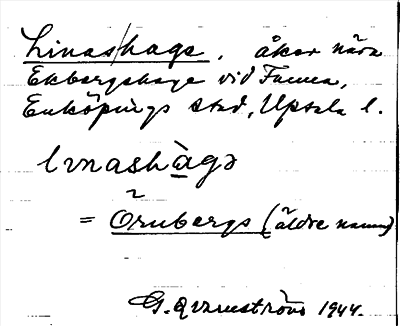 Linas/hage, åker nära
Ekbergshage vid Fanna,
Enköpings stad, Upsala l.
linashàgə
= Örnbergs (äldre namn)
G. Qvarnström 1944.